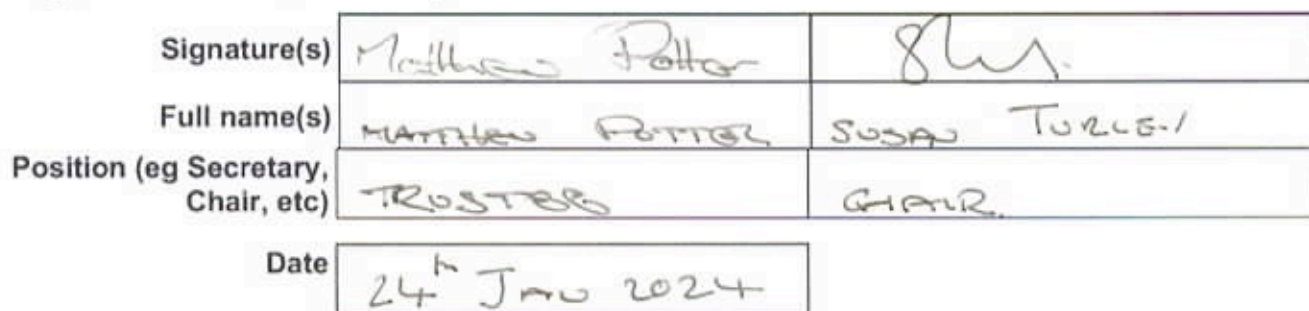 Signature(s) Matthew Potter
Full name(s) MATTHEW POTTER SUSAN TURLEY
Position (eg Secretary,
Chair, etc) TRUSTEE CHAIR
Date 24th JAN 2024